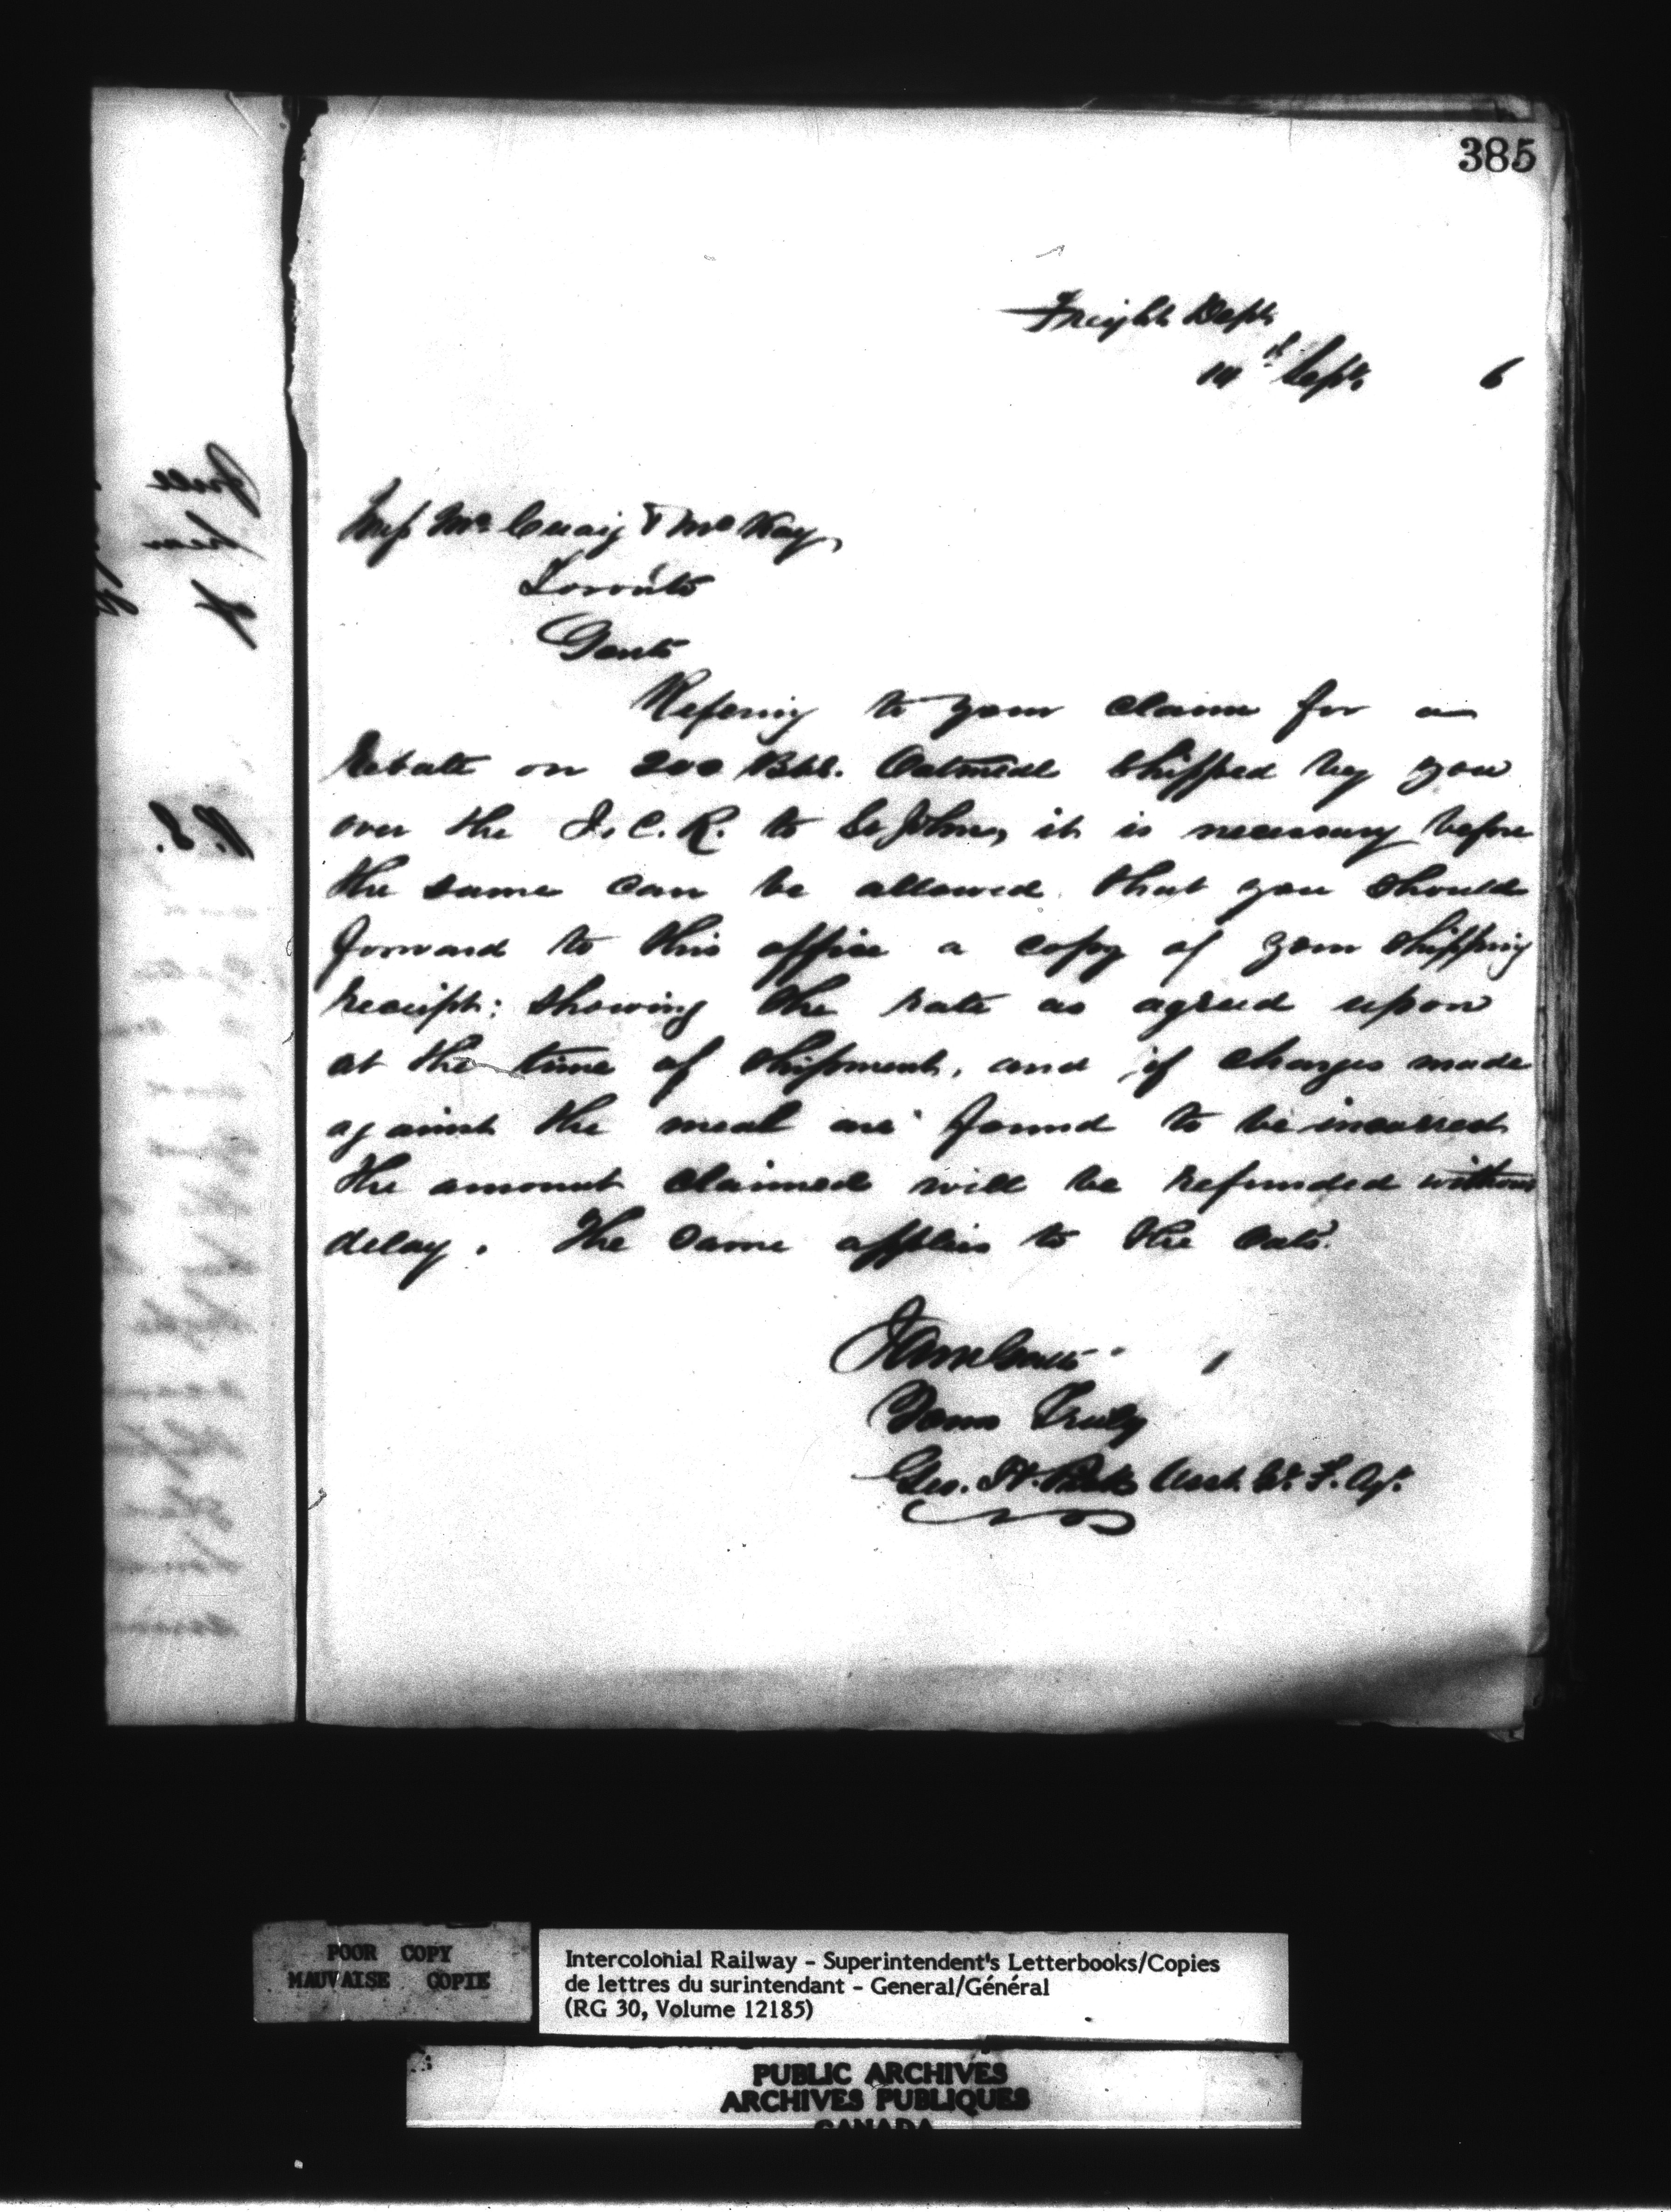 385
Freight Dept
14th Sept. 6
Mess McCuaig & McKay,
Toronto
Gents
Refering to your claim for a
Rebate on 200 Bbl. Oatmeal shipped by you
over the I. C. R. to St John, it is necessary before
the same can be allowed that you should
forward to this office a copy of your shipping
receipt: showing the rate as agreed upon
at the time of shipment, and if charges made
against the meal are found to be incorrect
the amount claimed will be refunded without
delay. The same applies to the Oats.
Yours Truly
Geo. Asst. G. F. Agt.
POOR COPY
MAUVAISE COPIE
Intercolonial Railway - Superintendent's Letterbooks/Copies
de lettres du surintendant - General/Général
(RG 30, Volume 12185)
PUBLIC ARCHIVES
ARCHIVES PUBLIQUES
CANADA